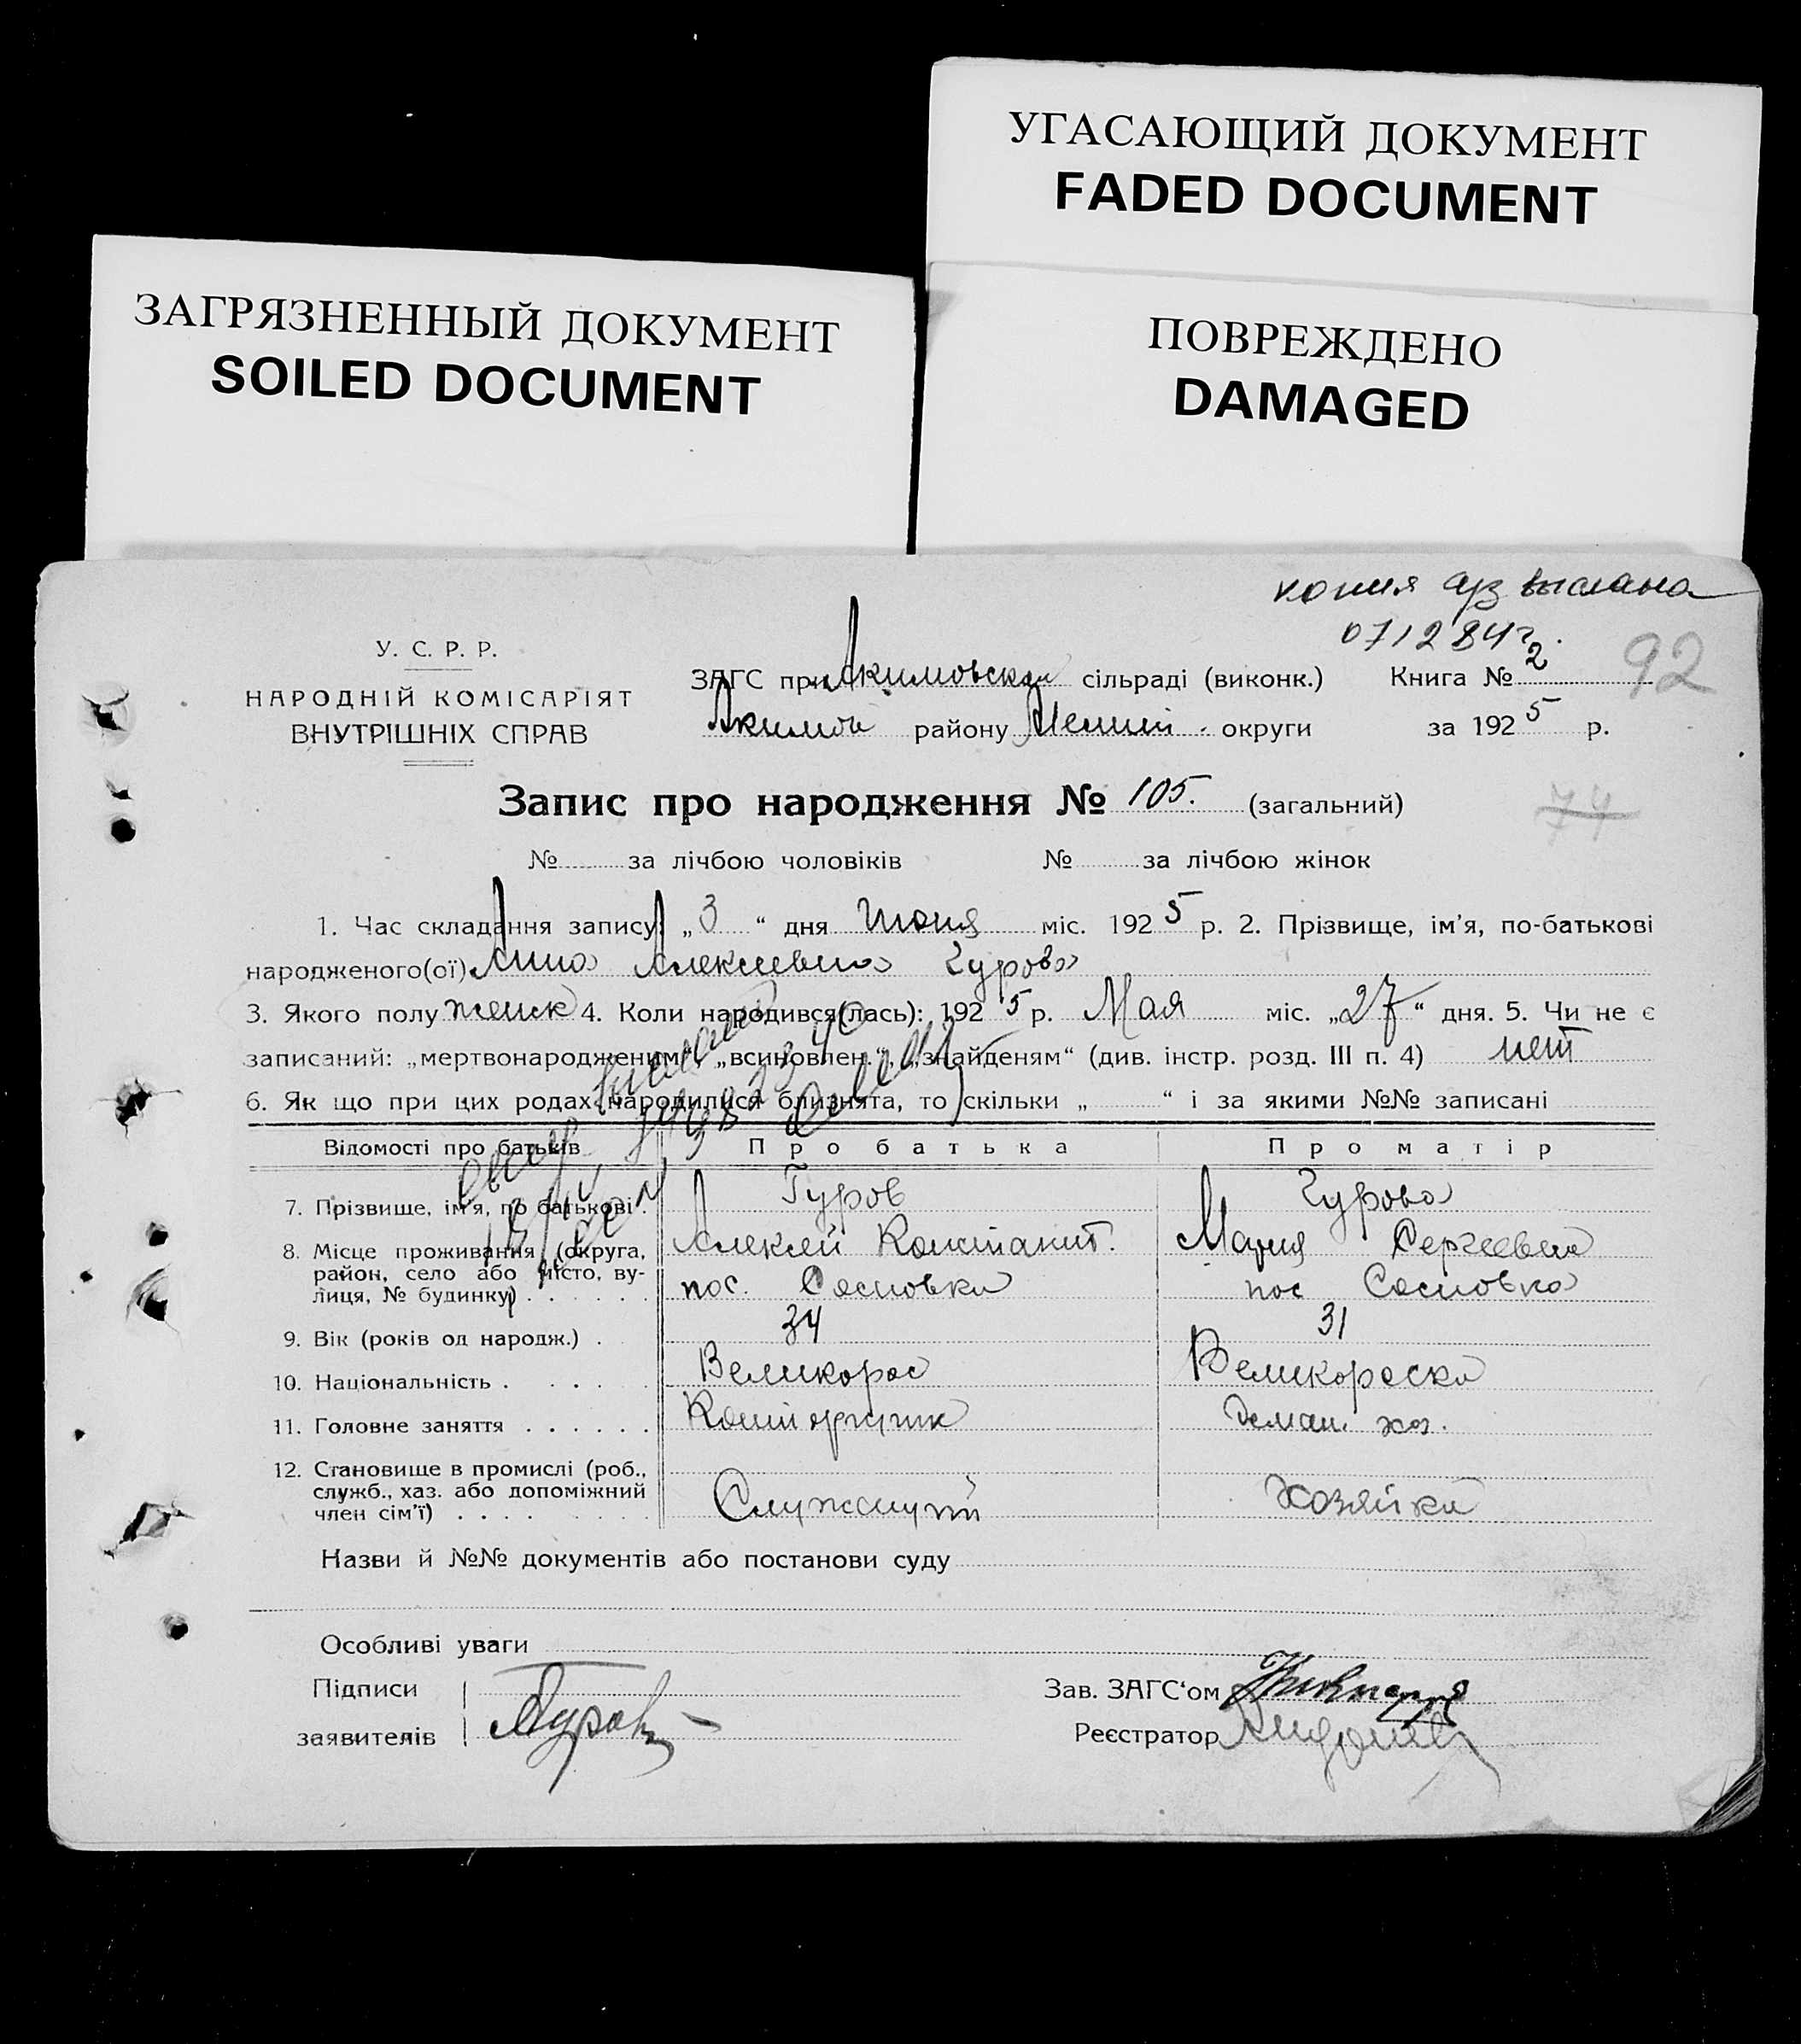 УГАСАЮЩИЙ ДОКУМЕНТ
FADED DOCUMENT
ЗАГРЯЗНЕННЫЙ ДОКУМЕНТ
SOILED DOCUMENT
ПОВРЕЖДЕНО
DAMAGED
копия а/з выслана
071284г.
92
У. С. Р. Р.
НАРОДНІЙ КОМІСАРІЯТ
ВНУТРІШНІХ СПРАВ
ЗАГС при Акимовской сільраді (виконк.) Книга № 2
Акимов району Мелит. округи за 1925 р.
Запис про народження № 105. (загальний)
74
№ за лічбою чоловіків № за лічбою жінок
1. Час складання запису: „3“ дня Июня міс. 1925 р. 2. Прізвище, ім'я, по-батькові
народженого(ої) Анна Алексеевна Гурова
3. Якого полу женск 4. Коли народився(лась): 1925 р. Мая міс. „27“ дня. 5. Чи не є
записаний: „мертвонародженим“, „всиновлен.“, „знайденям“ (див. інстр. розд. III п. 4) нет
6. Як що при цих родах народилися близнята, то скільки „ “ і за якими №№ записані
Відомості про батьків Про батька Про матір
7. Прізвище, ім'я, по батькові . Гуров Гурова
Алексей Констант. Мария Сергеевна
8. Місце проживання (округа,
район, село або місто, ву-
лиця, № будинку) . . . . . . пос. Сосновка пос Сосновка
9. Вік (років од народж.) . 34 31
10. Національність . . . . . Великорос Великороска
11. Головне заняття . . . . . . Конторщик Домаш. хоз.
12. Становище в промислі (роб.,
служб., хаз. або допоміжний
член сім'ї) . . . . Служащий Хозяйка
Назви й №№ документів або постанови суду
Особливі уваги
Підписи
заявителів АГуров
Зав. ЗАГС'ом
Реєстратор